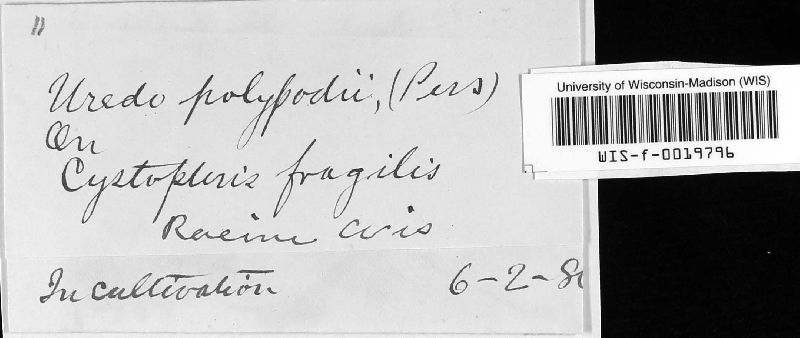 11
Uredo polypodii, (Pers)
On
Cystopteris fragilis
Racine Wis
In cultivation 6-2-8
University of Wisconsin-Madison (WIS)
WIS-f-0019796